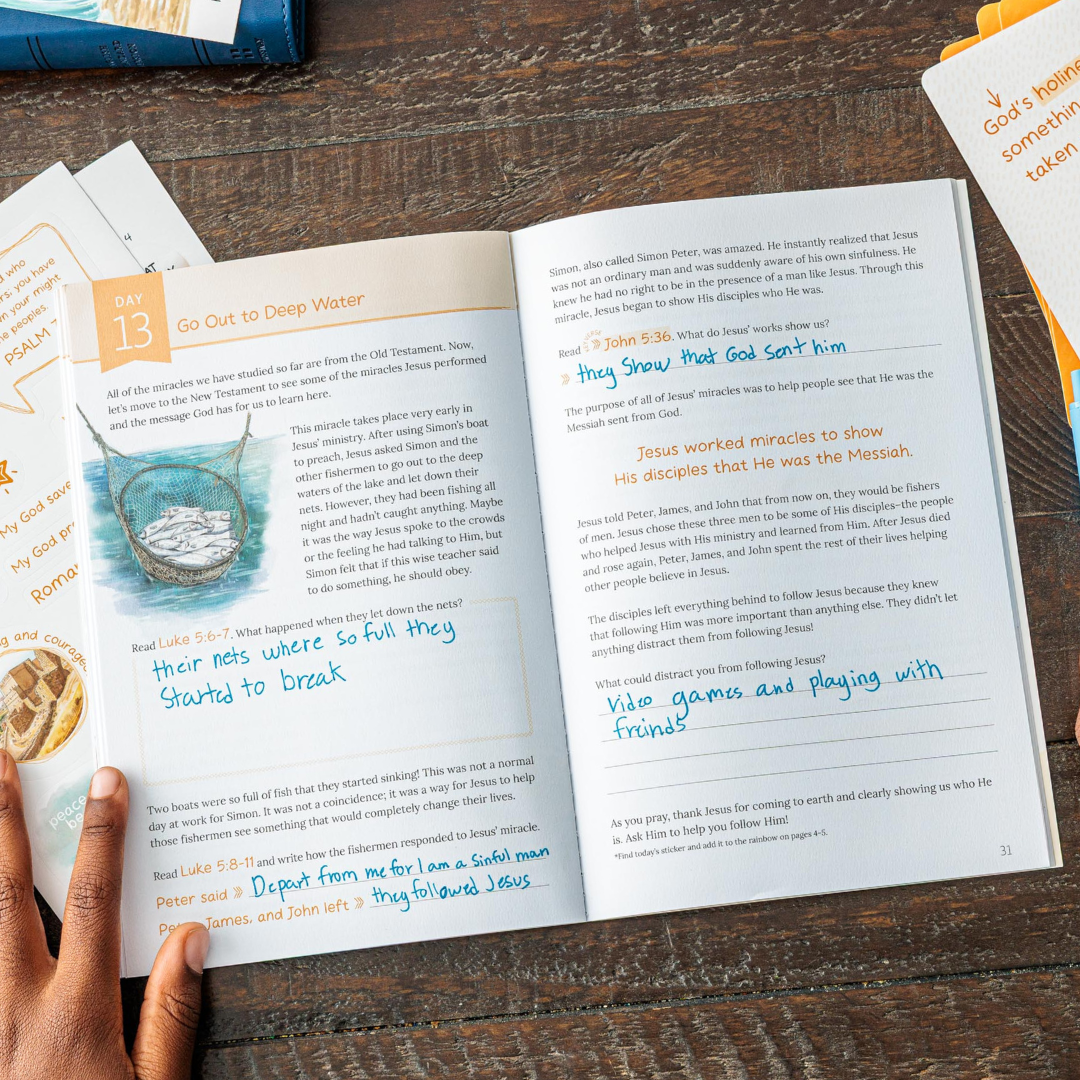 d who
rs; you have
n your might
he peoples.
PSALM 7
My God save
My God pr
Roma
ng and courage
peace
be
4
AT
DAY
13
Go Out to Deep Water
All of the miracles we have studied so far are from the Old Testament. Now,
let's move to the New Testament to see some of the miracles Jesus performed
and the message God has for us to learn here.
This miracle takes place very early in
Jesus' ministry. After using Simon's boat
to preach, Jesus asked Simon and the
other fishermen to go out to the deep
waters of the lake and let down their
nets. However, they had been fishing all
night and hadn't caught anything. Maybe
it was the way Jesus spoke to the crowds
or the feeling he had talking to Him, but
Simon felt that if this wise teacher said
to do something, he should obey.
Read Luke 5:6-7. What happened when they let down the nets?
their nets where so full they
Started to break
Two boats were so full of fish that they started sinking! This was not a normal
day at work for Simon. It was not a coincidence; it was a way for Jesus to help
those fishermen see something that would completely change their lives.
Read Luke 5:8-11 and write how the fishermen responded to Jesus' miracle.
Peter said » Depart from me for I am a sinful man
Pe James, and John left » they followed Jesus
Simon, also called Simon Peter, was amazed. He instantly realized that Jesus
was not an ordinary man and was suddenly aware of his own sinfulness. He
knew he had no right to be in the presence of a man like Jesus. Through this
miracle, Jesus began to show His disciples who He was.
Read » John 5:36. What do Jesus' works show us?
» they Show that God sent him
The purpose of all of Jesus' miracles was to help people see that He was the
Messiah sent from God.
Jesus worked miracles to show
His disciples that He was the Messiah.
Jesus told Peter, James, and John that from now on, they would be fishers
of men. Jesus chose these three men to be some of His disciples–the people
who helped Jesus with His ministry and learned from Him. After Jesus died
and rose again, Peter, James, and John spent the rest of their lives helping
other people believe in Jesus.
The disciples left everything behind to follow Jesus because they knew
that following Him was more important than anything else. They didn't let
anything distract them from following Jesus!
What could distract you from following Jesus?
Video games and playing with
freinds
As you pray, thank Jesus for coming to earth and clearly showing us who He
is. Ask Him to help you follow Him!
*Find today's sticker and add it to the rainbow on pages 4-5.
31
God's holine
somethin
taken